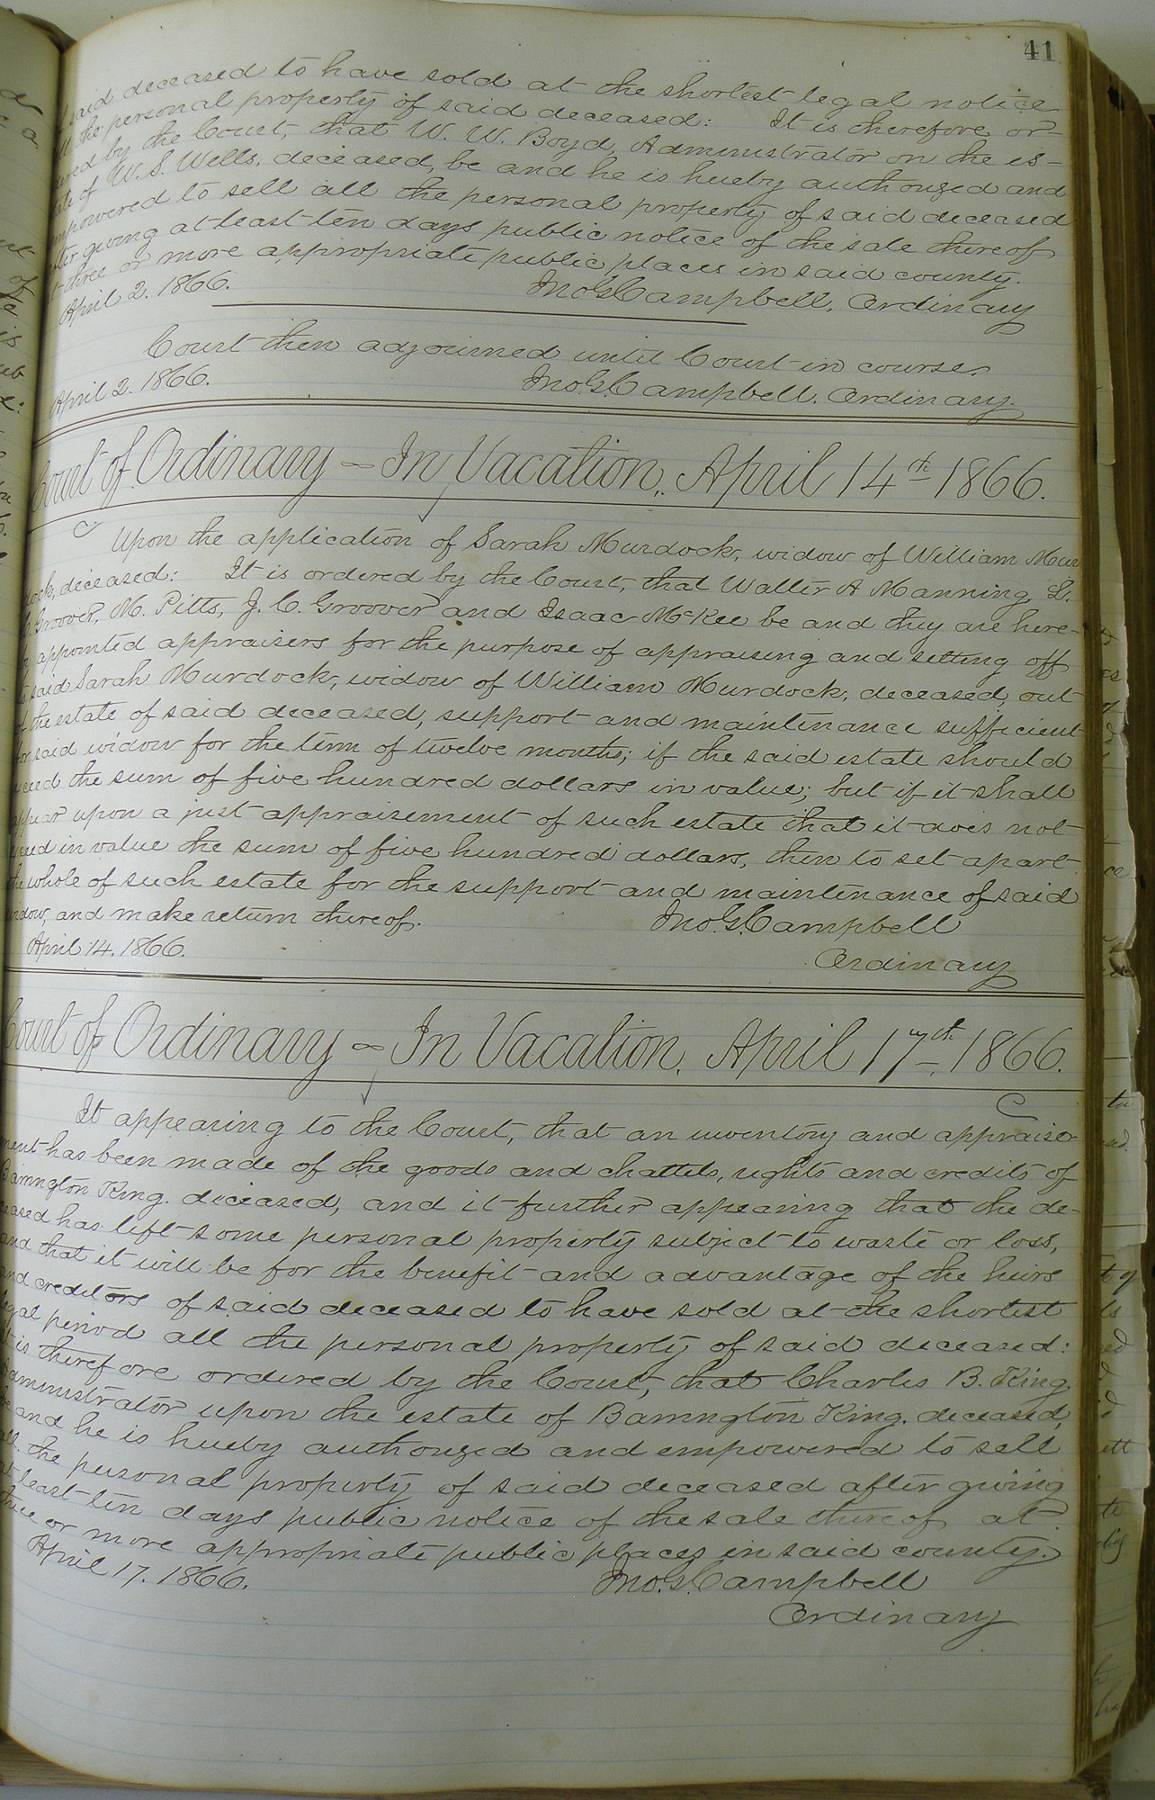 41
said deceased to have sold at the shortest legal notice
the personal property of said deceased: It is therefore or-
dered by the Court, that W. W. Boyd, Administrator on the es-
tate of W. S. Wells, deceased, be and he is hereby authorized and
empowered to sell all the personal property of said deceased
after giving at least ten days public notice of the sale thereof
at three or more appropriate public places in said county.
April 2. 1866. Jno. G. Campbell, Ordinary
Court then adjourned until Court in course.
April 2. 1866. Jno. G. Campbell. Ordinary.
Court of Ordinary – In Vacation, April 14th 1866.
Upon the application of Sarah Murdock, widow of William Mur
dock, deceased: It is ordered by the Court, that Walter A Manning, L.
Groover, M. Pitts, J. C. Groover and Isaac McKee be and they are here-
by appointed appraisers for the purpose of appraising and setting off
to said Sarah Murdock, widow of William Murdock, deceased, out
of the estate of said deceased, support and maintenance sufficient
for said widow for the term of twelve months; if the said estate should
exceed the sum of five hundred dollars in value; but if it shall
appear upon a just appraisement of such estate that it does not
exceed in value the sum of five hundred dollars, then to set apart
the whole of such estate for the support and maintenance of said
widow, and make return thereof. Jno. G. Campbell
April 14. 1866. Ordinary
Court of Ordinary – In Vacation, April 17th 1866.
It appearing to the Court, that an inventory and appraise-
ment has been made of the goods and chattels, rights and credits of
Barrington King, deceased, and it further appearing that the de-
ceased has left some personal property subject to waste or loss,
and that it will be for the benefit and advantage of the heirs
and creditors of said deceased to have sold at the shortest
legal period all the personal property of said deceased:
It is therefore ordered by the Court, that Charles B. King
Administrator upon the estate of Barrington King, deceased,
be and he is hereby authorized and empowered to sell
all the personal property of said deceased after giving
at least ten days public notice of the sale thereof at
three or more appropriate public places in said county.
April 17. 1866. Jno. G. Campbell
Ordinary